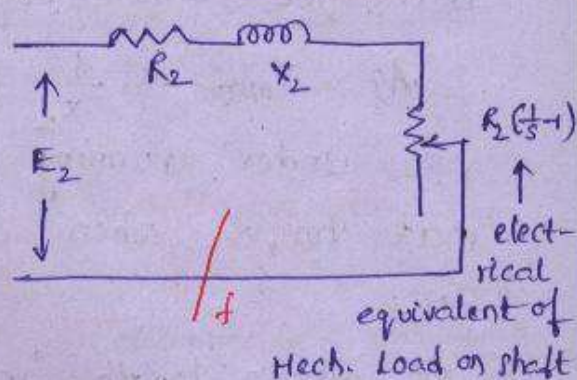 R₂ X₂
R₂(1/s-1)
E₂
elect-
rical
f
equivalent of
Mech. Load on shaft